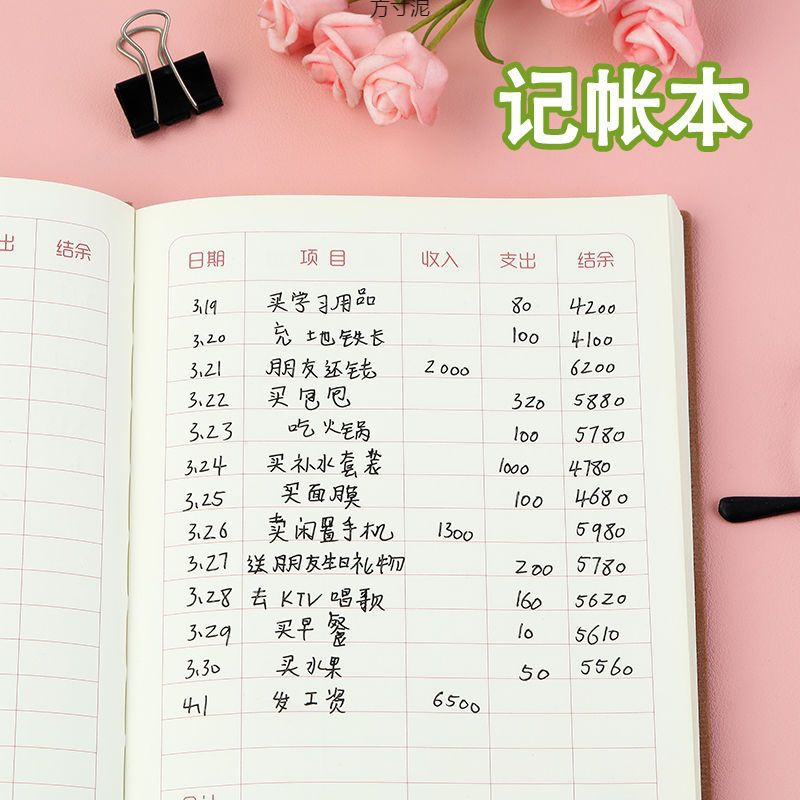 方寸泥
记帐本
出 结余
日期 项目 收入 支出 结余
3.19 买学习用品 80 4200
3.20 充地铁卡 100 4100
3.21 朋友还钱 2000 6200
3.22 买包包 320 5880
3.23 吃火锅 100 5780
3.24 买补水套装 1000 4780
3.25 买面膜 100 4680
3.26 卖闲置手机 1300 5980
3.27 送朋友生日礼物 200 5780
3.28 去KTV唱歌 160 5620
3.29 买早餐 10 5610
3.30 买水果 50 5560
4.1 发工资 6500